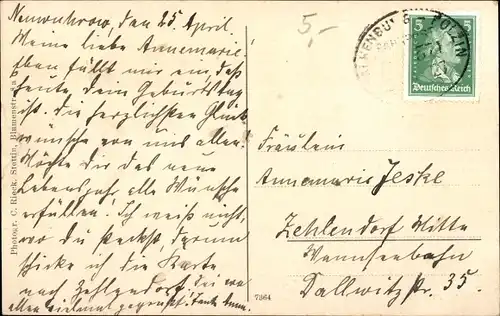 Neuwuhrow, den 25. April.
Meine liebe Annemarie!
Eben fällt mir ein, daß
heute dein Geburtstag
ist. Die herzlichsten Glück-
wünsche von uns allen.
Möchte Dir das neue
Lebensjahr alle Wünsche
erfüllen! Ich weiß nicht,
wo du steckst, darum
schicke ich die Karte
nach Zehlendorf. Sei von
allen vielmal gegrüßt! Tante
5,-
Photogr. C. Rieck, Stettin, Blumenstr.
7364
POLZIN
5
5
Deutsches Reich
Fräulein
Annemarie Jeske
Zehlendorf Mitte
Wannseebahn
Dallwitz Str. 35.